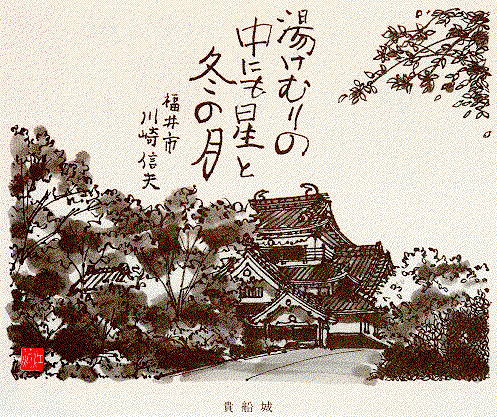 湯けむりの
中にも星と
冬の月
福井市
川崎信夫
貴船城